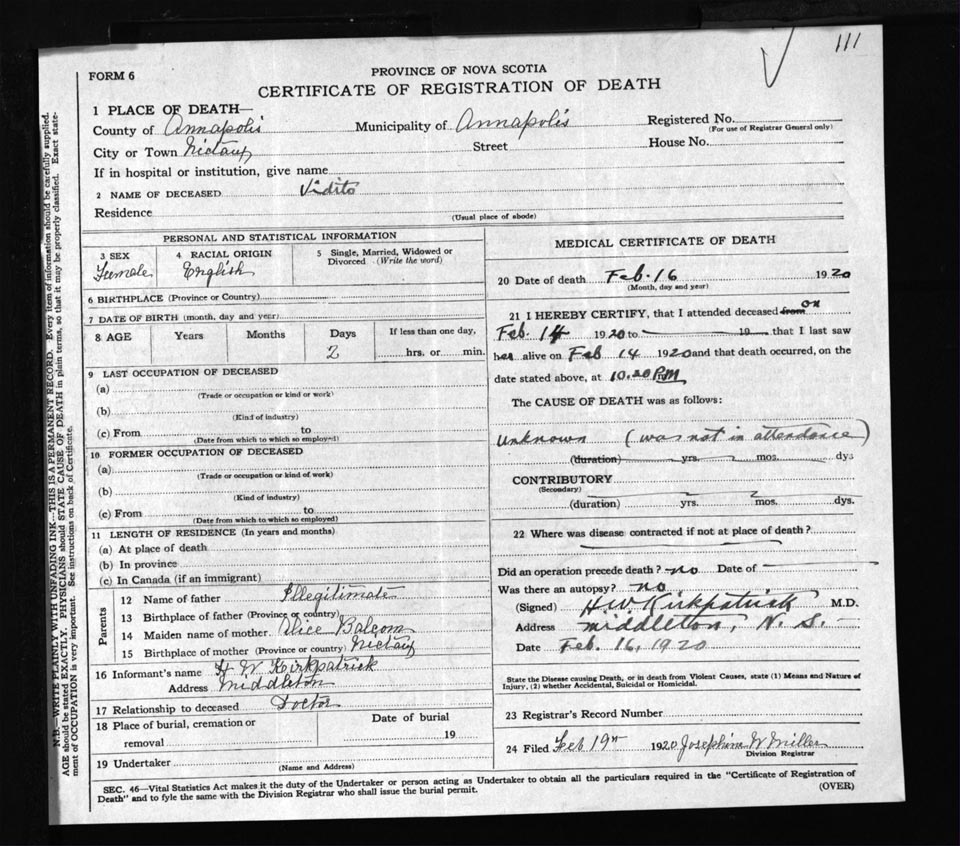 111
FORM 6
PROVINCE OF NOVA SCOTIA
CERTIFICATE OF REGISTRATION OF DEATH
1 PLACE OF DEATH—
County of Annapolis Municipality of Annapolis Registered No.
(For use of Registrar General only)
City or Town Nictaux Street House No.
If in hospital or institution, give name
2 NAME OF DECEASED Vidito
Residence
(Usual place of abode)
PERSONAL AND STATISTICAL INFORMATION
3 SEX 4 RACIAL ORIGIN 5 Single, Married, Widowed or
Divorced (Write the word)
Female English
6 BIRTHPLACE (Province or Country)
7 DATE OF BIRTH (month, day and year)
8 AGE Years Months Days If less than one day,
2 hrs. or min.
9 LAST OCCUPATION OF DECEASED
(a)
(Trade or occupation or kind or work)
(b)
(Kind of industry)
(c) From to
(Date from which to which so employed)
10 FORMER OCCUPATION OF DECEASED
(a)
(Trade or occupation or kind of work)
(b)
(Kind of industry)
(c) From to
(Date from which to which so employed)
11 LENGTH OF RESIDENCE (In years and months)
(a) At place of death
(b) In province
(c) In Canada (if an immigrant)
Parents
12 Name of father Illegitimate
13 Birthplace of father (Province or country)
14 Maiden name of mother Alice Balcom
15 Birthplace of mother (Province or country) Nictaux
16 Informant's name H W Kirkpatrick
Address Middleton
17 Relationship to deceased Doctor
18 Place of burial, cremation or Date of burial
removal 19
19 Undertaker
(Name and Address)
MEDICAL CERTIFICATE OF DEATH
20 Date of death Feb. 16 1920
(Month, day and year)
21 I HEREBY CERTIFY, that I attended deceased from on
Feb. 14 1920 to 19 that I last saw
her alive on Feb 14 1920 and that death occurred, on the
date stated above, at 10.20 P.M
The CAUSE OF DEATH was as follows:
Unknown (was not in attendance)
(duration) yrs. mos. dys
CONTRIBUTORY
(Secondary)
(duration) yrs. mos. dys.
22 Where was disease contracted if not at place of death?
Did an operation precede death? no Date of
Was there an autopsy? no
(Signed) H.W. Kirkpatrick M.D.
Address Middleton, N. S.
Date Feb. 16, 1920
State the Disease causing Death, or in death from Violent Causes, state (1) Means and Nature of
Injury, (2) whether Accidental, Suicidal or Homicidal.
23 Registrar's Record Number
24 Filed Feb 19th 1920 Josephine W Miller
Division Registrar
SEC. 46—Vital Statistics Act makes it the duty of the Undertaker or person acting as Undertaker to obtain all the particulars required in the "Certificate of Registration of
Death" and to fyle the same with the Division Registrar who shall issue the burial permit.
(OVER)
N.B.—WRITE PLAINLY WITH UNFADING INK—THIS IS A PERMANENT RECORD. Every item of information should be carefully supplied.
AGE should be stated EXACTLY. PHYSICIANS should STATE CAUSE OF DEATH in plain terms, so that it may be properly classified. Exact state-
ment of OCCUPATION is very important. See instructions on back of Certificate.